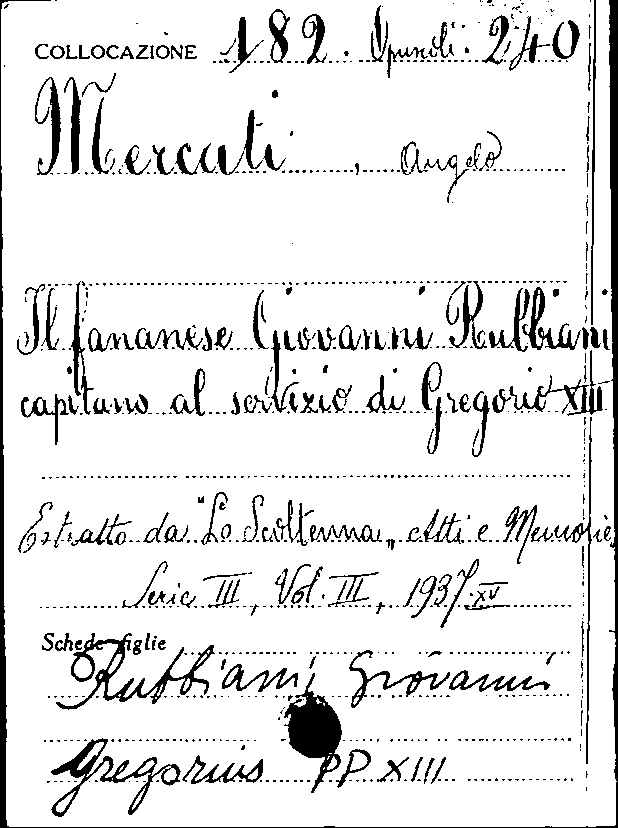 COLLOCAZIONE 182. Opuscoli. 240
Mercati, Angelo
Il fananese Giovanni Rubbiani
capitano al servizio di Gregorio XIII
Estratto da "Lo Scoltenna" Atti e Memorie,
Serie III, Vol. III, 1937. XV
Schede figlie
Rubbiani, Giovanni
Gregorius PP XIII